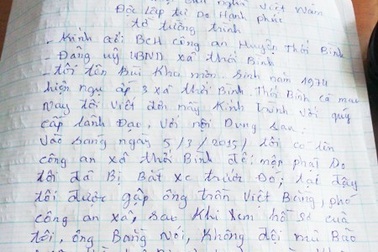 nghĩa Việt Nam
Độc lập tự do Hạnh phúc
tờ tường trình
- Kính gởi: BCH công an Huyện Thới Bình
- Đảng uỷ UBND xã thới Bình
- tôi tên Bùi Kha Sinh năm 1974
hiện ngụ ấp 3 xã thới Bình Thới Bình cà mau
Nay tôi Viết đơn này Kính Trình Với quý
cấp Lãnh Đạo. Với nội Dung Sau.
Vào Sáng ngày 5/3/2015/ tôi có lên
công an xã thới Bình để mộp phạt Do
tôi đã Bị Bắt xc trước Đó; tại đây
tôi được gặp ông trần Việt Bằng, phó
công an xã, Sau Khi xem hồ sơ của
tôi, ông Bằng Nói, Không đội mũ Bảo